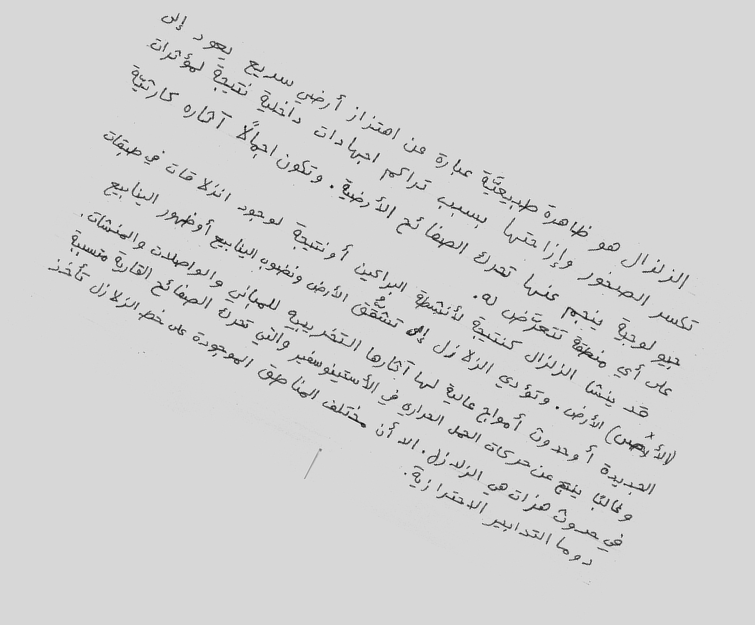 الزلزال هو ظاهرة طبيعيَّة عبارة عن اهتزاز أرضي سريع يعود إلى
تكسر الصخور وإزاحتها بسبب تراكم اجهادات داخلية نتيجة لمؤثرات
جيولوجية ينجم عنها تحرك الصفائح الأرضية. وتكون اجمالًا آثاره كارثيَّة
على أي منطقة تتعرّض له.
قد ينشا الزلزال كنتيجة لأنشطة البراكين أو نتيجة لوجود انزلاقات في طبقات
الأرض. وتؤدي الزلازل إلى تشقُّق الأرض ونضوب الينابيع أو ظهور الينابيع
الجديدة أو حدوث أمواج عالية لها آثارها التخريبيه للمباني والواصلات والمنشات.
وغالبًا ينتج عن حركات الحمل الحراري في الأستينوسفير والتي تحرك الصفائح القارية متسببة
في حدوث هزات هي الزلازل. الا أن مختلف المناطق الموجودة على خط الزلازل تأخذ
دوما التدابير الاحترازية.